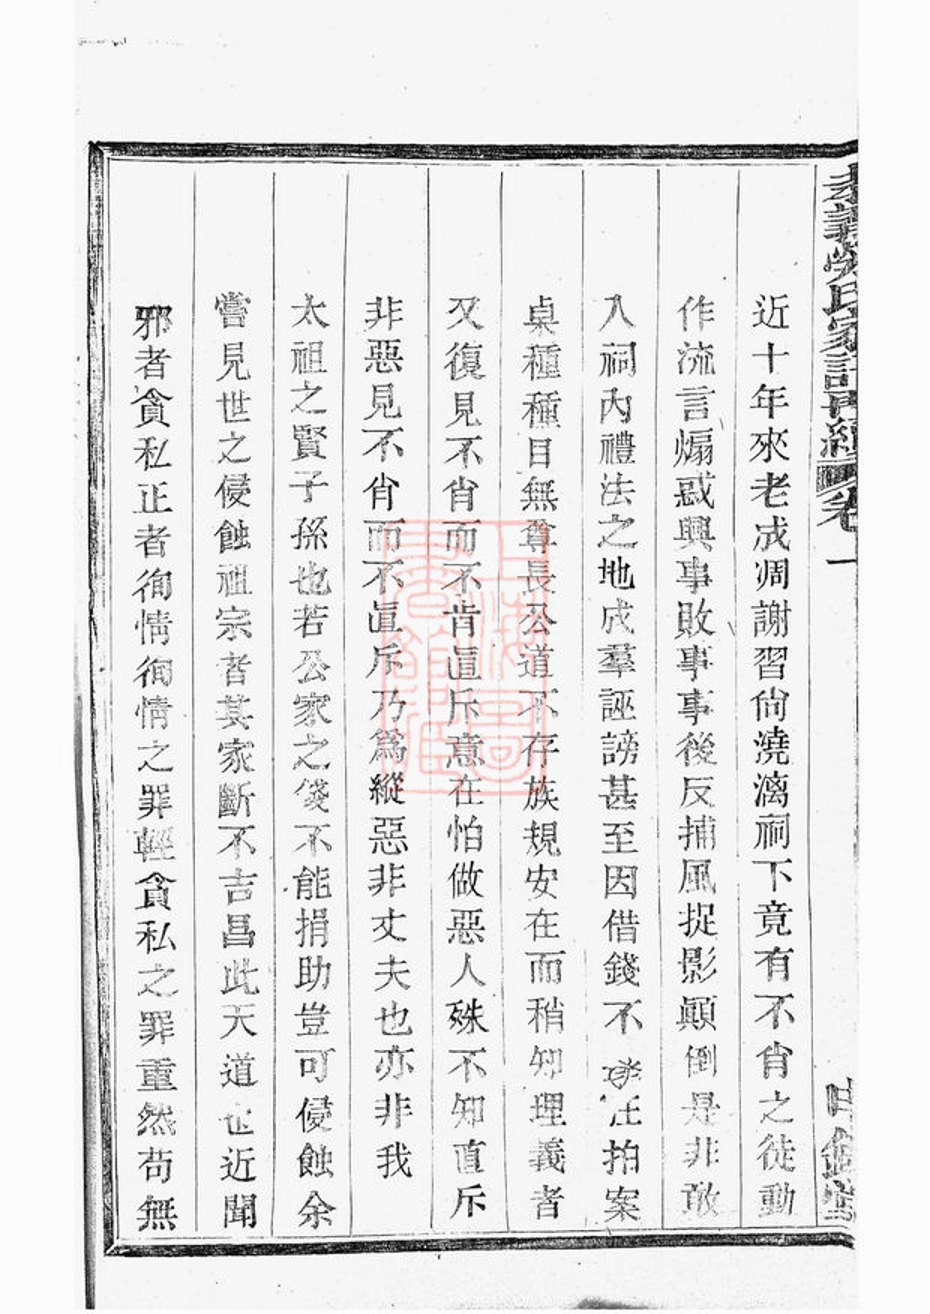 氏家
卷一
近十年來老成凋謝習尙澆漓祠下竟有不肖之徒動
作流言煽惑興事敗事事後反捕風捉影顚倒是非敢
入祠內禮法之地成羣誣謗甚至因借錢不拍案
桌種種目無尊長公道不存族規安在而稍知理義者
又復見不肖而不肯直斥意在怕做惡人殊不知直斥
非惡見不肖而不直斥乃爲縱惡非丈夫也亦非我
太祖之賢子孫也若公家之錢不能捐助豈可侵蝕余
嘗見世之侵蝕祖宗者其家斷不吉昌此天道也近聞
邪者貪私正者徇情徇情之罪輕貪私之罪重然苟無
上海圖書館藏